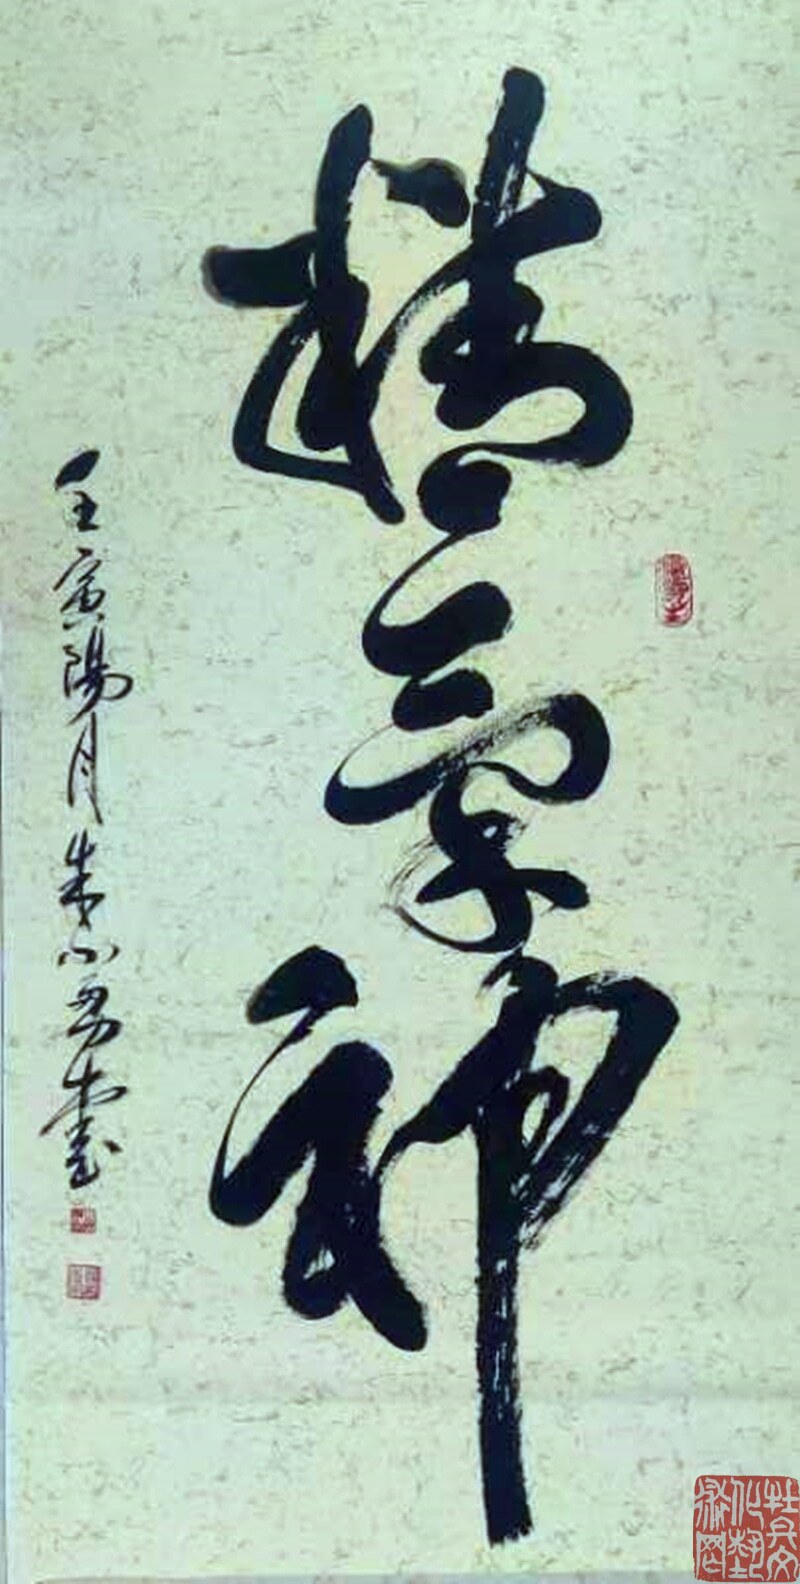 精氣神
壬寅陽月朱小勇書